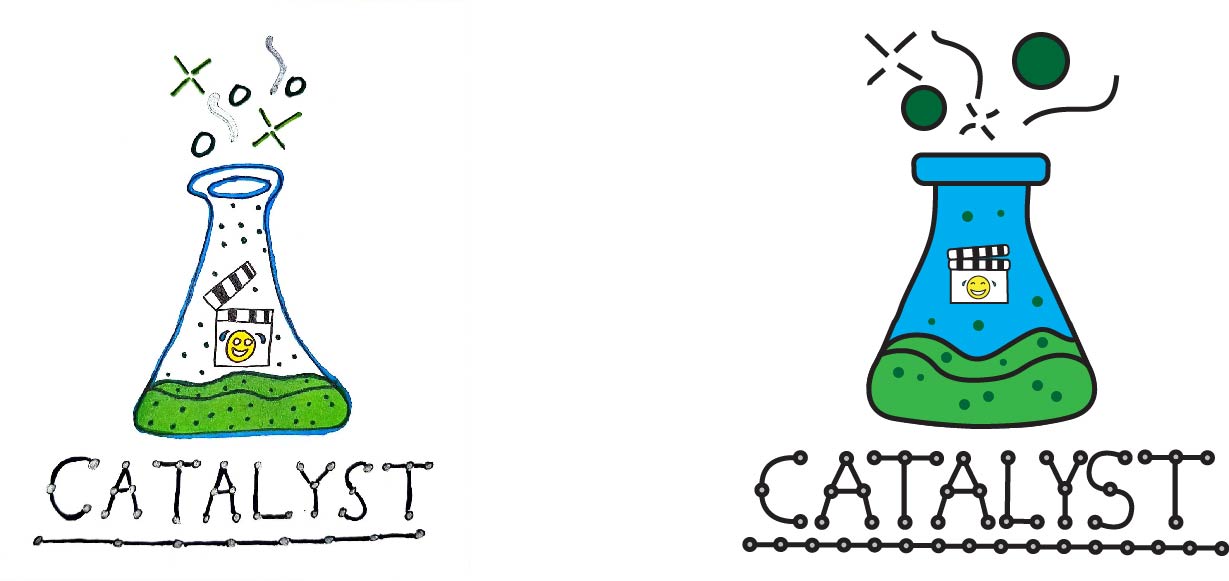 CATALYST
CATALYST